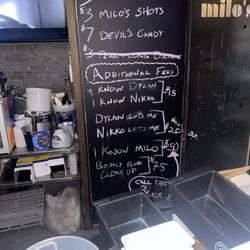 $3 MILO'S SHOTS
$7 DEVIL'S CANDY
$3
ADDITIONAL FEES
I KNOW DYLAN
I KNOW NIKKO
$15
DYLAN LET'S ME
NIKKO LET'S ME
$20
I KNOW MILO
BODILY FLUID
CLEAN UP
$75
CALL
milo's